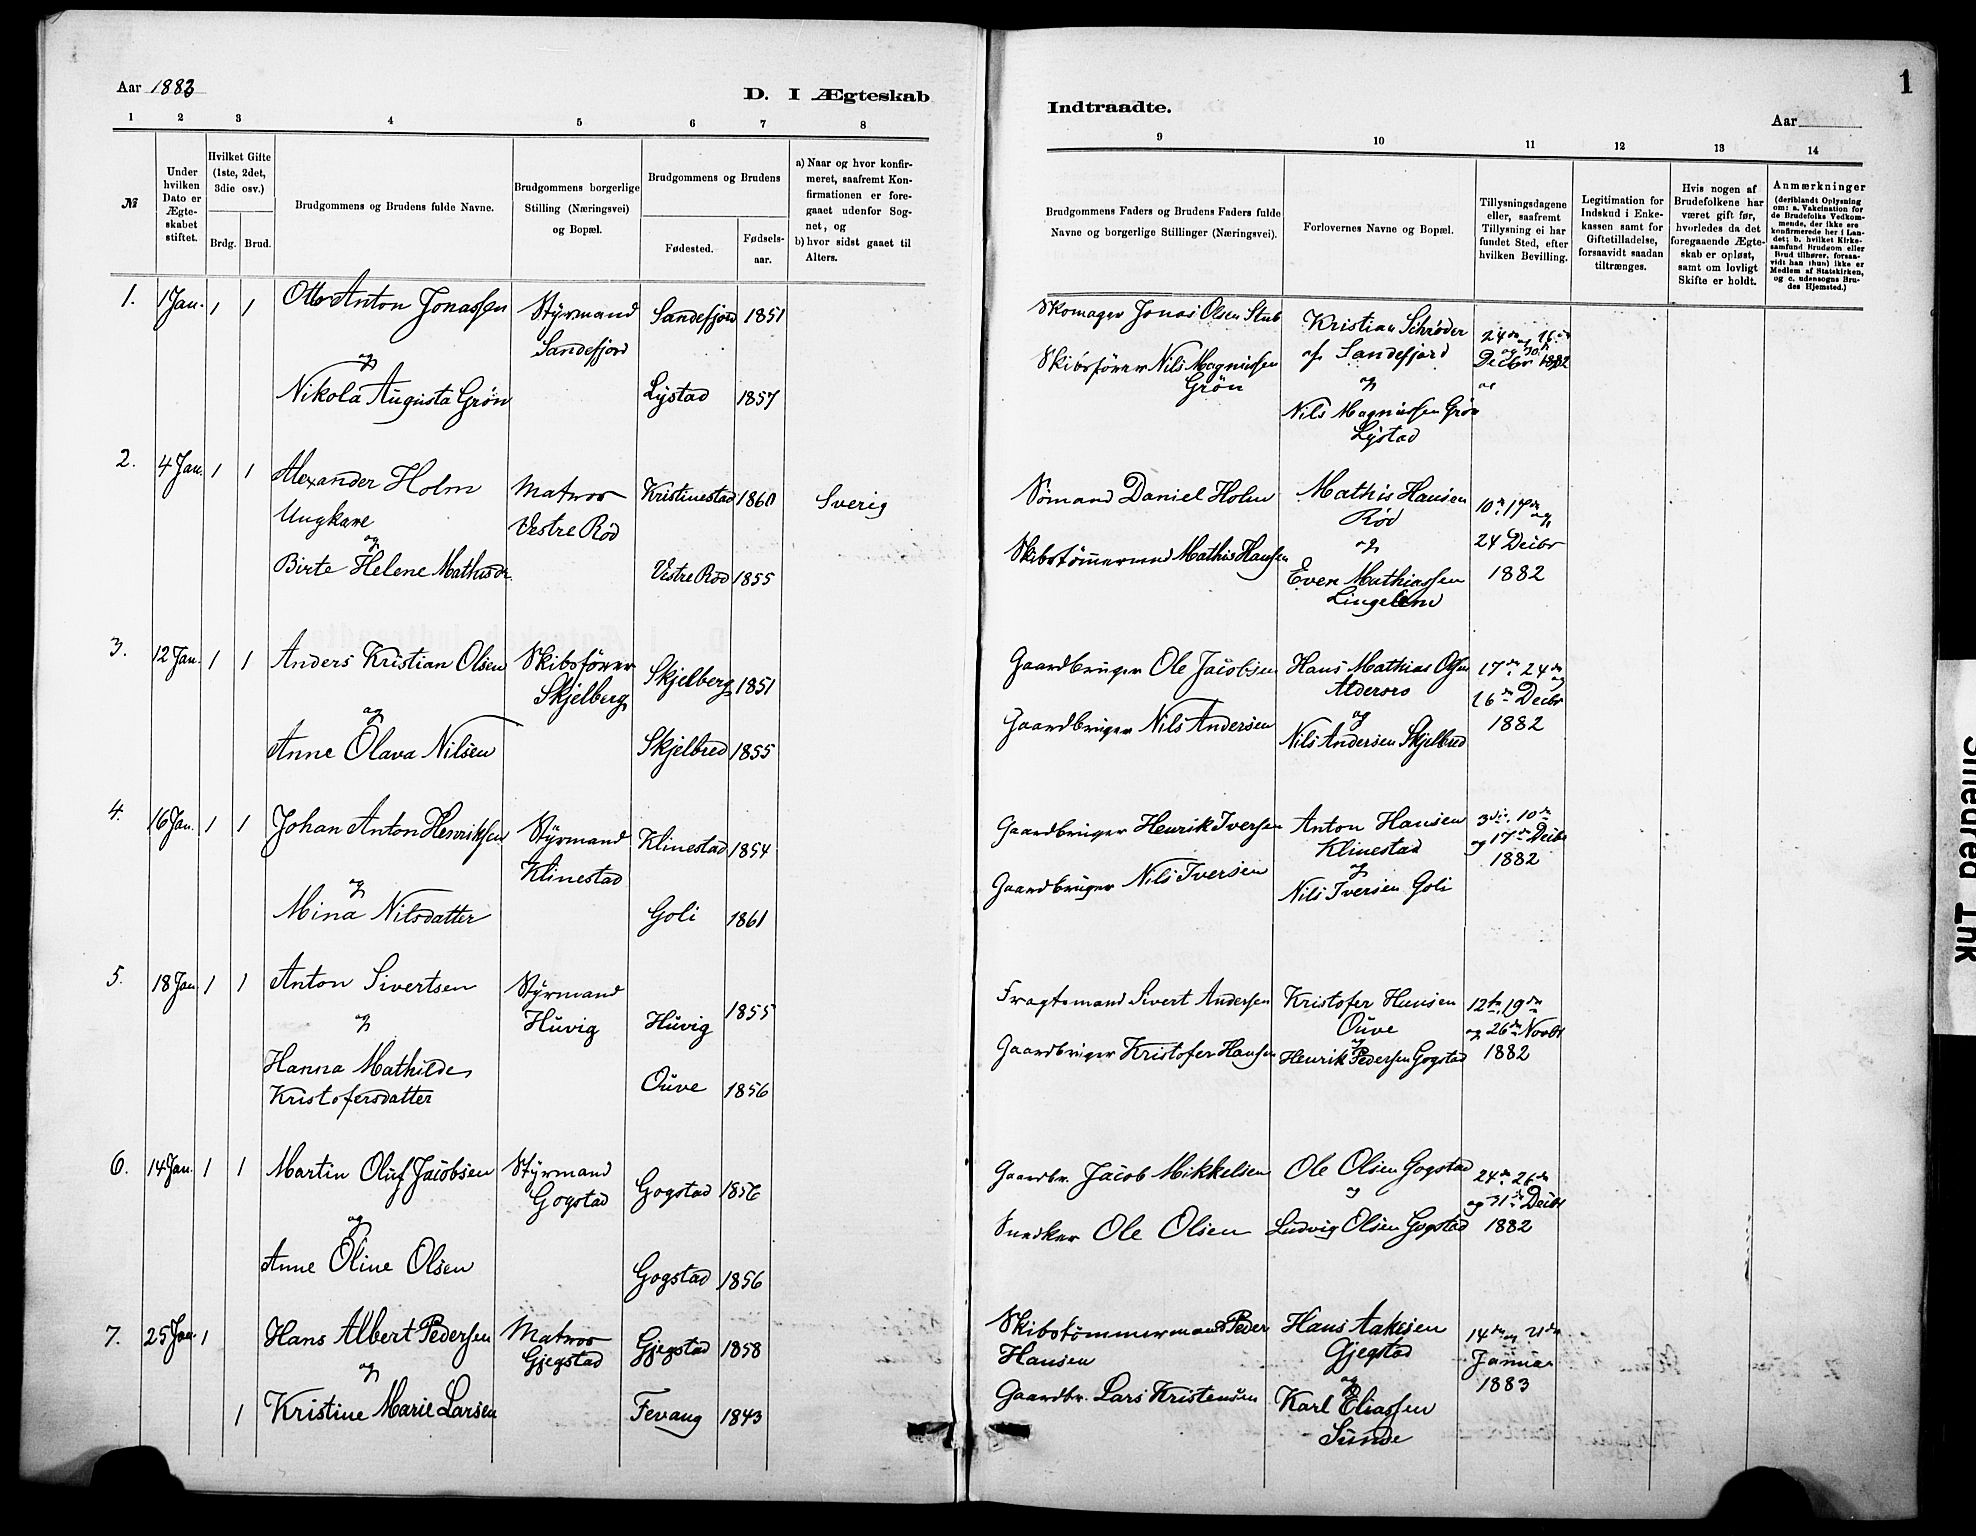 Aar 1883
D. I Ægteskab
Indtraadte.
Aar
1
1 2 3 4 5 6 7 8 9 10 11 12 13 14
№
Under hvilken Dato er Ægte-skabet stiftet.
Hvilket Gifte (1ste, 2det, 3die osv.)
Brdg. Brud.
Brudgommens og Brudens fulde Navne.
Brudgommens borgerlige Stilling (Næringsvei) og Bopæl.
Brudgommens og Brudens
Fødested.
Fødsels-aar.
a) Naar og hvor konfir-meret, saafremt Kon-firmationen er fore-gaaet udenfor Sog-net, og
b) hvor sidst gaaet til Alters.
Brudgommens Faders og Brudens Faders fulde Navne og borgerlige Stillinger (Næringsvei).
Forlovernes Navne og Bopæl.
Tillysningsdagene eller, saafremt Tillysning ei har fundet Sted, efter hvilken Bevilling.
Legitimation for Indskud i Enke-kassen samt for Giftetilladelse, forsaavidt saadan tiltrænges.
Hvis nogen af Brudefolkene har været gift før, hvorledes da det foregaaende Ægte-skab er opløst, samt om lovligt Skifte er holdt.
Anmærkninger (deriblandt Oplysning om: a. Vakcination for de Brudefolks Vedkom-mende, der ikke ere konfirmerede her i Lan-det; b. hvilket Kirke-samfund Brudgom eller Brud tilhører, forsaa-vidt han (hun) ikke er Medlem af Statskirken, og c. udensogns Bru-des Hjemsted.)
1. 1 Jan. 1 1 Otto Anton Jonassen Styrmand Sandefjord Sandefjord 1851
og
Nikola Augusta Grøn Lystad 1857
Skomager Jonas Olsen Stub
Skibsfører Nils Magnussen Grøn
Kristian Schrøder af Sandefjord
og
Nils Magnussen Grøn Lystad
Decbr 1882
2. 4 Jan. 1 1 Alexander Holm Matros Vestre Rød Kristinestad 1860 Sverig
Ungkare
og
Birte Helene Mathisdr. Vestre Rød 1855
Sømand Daniel Holm
Skibstømmermd Mathis Hansen
Mathis Hansen Rød
og
Even Mathiassen
10de 17de og
24 Decbr
1882
3. 12 Jan. 1 1 Anders Kristian Olsen Skibsfører Skjelberg Skjelberg 1851
og
Anne Olava Nilsen Skjelbred 1855
Gaardbruger Ole Jacobsen
Gaardbruger Nils Andersen
Hans Mathias Olsen
og
Nils Andersen Skjelbred
17de 24de og
26de Decbr
1882
4. 16 Jan. 1 1 Johan Anton Henriksen Styrmand Klinestad Klinestad 1854
og
Mina Nilsdatter Goli 1861
Gaardbruger Henrik Iversen
Gaardbruger Nils Iversen
Anton Hansen Klinestad
og
Nils Iversen Goli
3die 10de
og 17de Decbr
1882
5. 18 Jan 1 1 Anton Sivertsen Styrmand Huvig Huvig 1855
og
Hanna Mathilde Kristofersdatter Ouve 1856
Fragtemand Sivert Andersen
Gaardbruger Kristofer Hansen
Kristofer Hansen Ouve
og
Henrik Pedersen Gogstad
12te 19de
og 26de Novbr
1882
6. 14 Jan. 1 1 Martin Oluf Jacobsen Styrmand Gogstad Gogstad 1856
og
Anne Oline Olsen Gogstad 1856
Gaardbr. Jacob Mikkelsen
Snedker Ole Olsen
Ole Olsen Gogstad
og
Ludvig Olsen Gogstad
24de 26de
og 31te Decbr
1882
7. 25 Jan. 1 Hans Albert Pedersen Matros Gjegstad Gjegstad 1858
og
1 Kristine Marie Larsen Fevang 1843
Skibstømmermand Peder Hansen
Gaardbr. Lars Kristensen
Hans Aakesen Gjegstad
og
Karl Eliassen Sunde
14de og 21de
Januar
1883